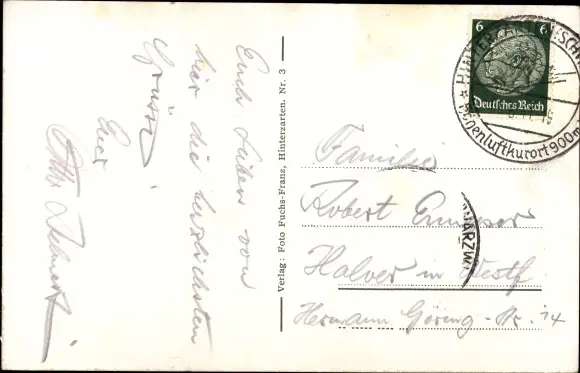 Euch Lieben von
hier die herzlichsten
Grüsse
Euer
Otto
Verlag: Foto Fuchs-Franz, Hinterzarten. Nr. 3
6 6
Deutsches Reich
HINTERZARTEN (SCHW
* Höhenluftkurort 900m
WARZW
Familie
Robert
Halver in Westf.
Hermann Göring-Str. 14